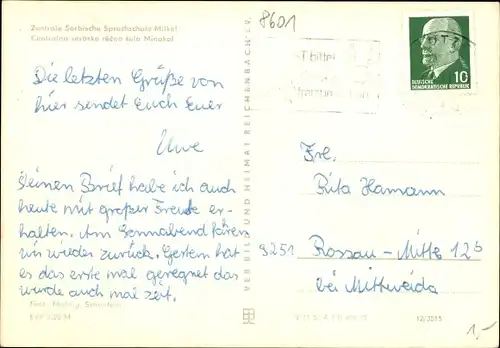 Zentrale Sorbische Sprachschule Milkel
Centralna serbska rěčna šula Minakał
8601
DEUTSCHE
DEMOKRATISCHE REPUBLIK
10
Die letzten Grüße von
hier sendet Euch Euer
Uwe
Deinen Brief habe ich auch
heute mit großer Freude er-
halten. Am Sonnabend fahren
wir wieder zurück. Gestern hat
es das erste mal geregnet das
wurde auch mal Zeit.
VEB BILD UND HEIMAT REICHENBACH i. V.
Frl.
Rita Hamann
9251 Rossau-Mitte 12b
bei Mittweida
EVP 0,20 M
1,-